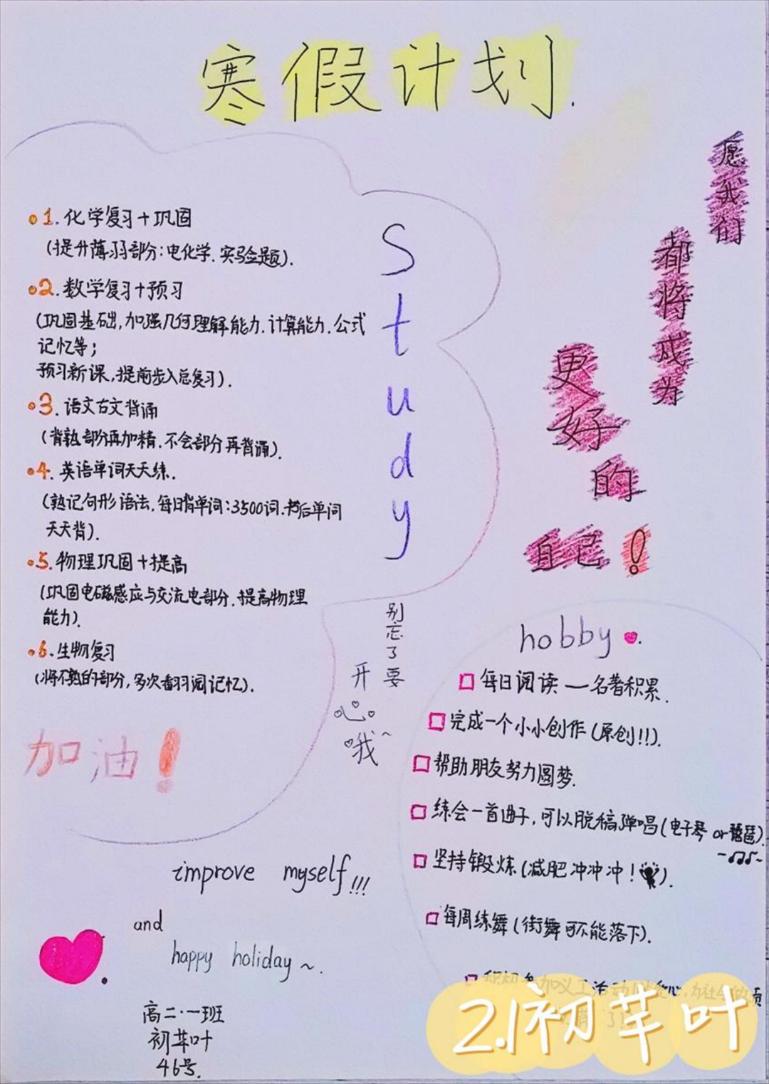 寒假计划.
愿我们
都将成为
更好
的
自己!
Study
1.化学复习+巩固
(提升薄弱部分:电化学.实验题).
2.数学复习+预习
(巩固基础,加强几何理解能力.计算能力.公式
记忆等;
预习新课,提前步入总复习).
3.语文古文背诵
(背熟部分再加精,不会部分再背诵).
4.英语单词天天练.
(熟记句形语法,每日背单词:3500词.书后单词
天天背).
5.物理巩固+提高
(巩固电磁感应与交流电部分.提高物理
能力).
6.生物复习
(将不熟的部分,多次翻阅记忆).
加油!
别忘了要
开心哦~
hobby
每日阅读—名著积累.
完成一个小小创作(原创!!).
帮助朋友努力圆梦.
练会一首曲子,可以脱稿弹唱(电子琴or琵琶)
坚持锻炼(减肥冲冲冲!).
每周练舞(街舞可不能落下).
improve myself!!!
and
happy holiday~.
高二·一班
初芊叶
46号.
2.1初芊叶